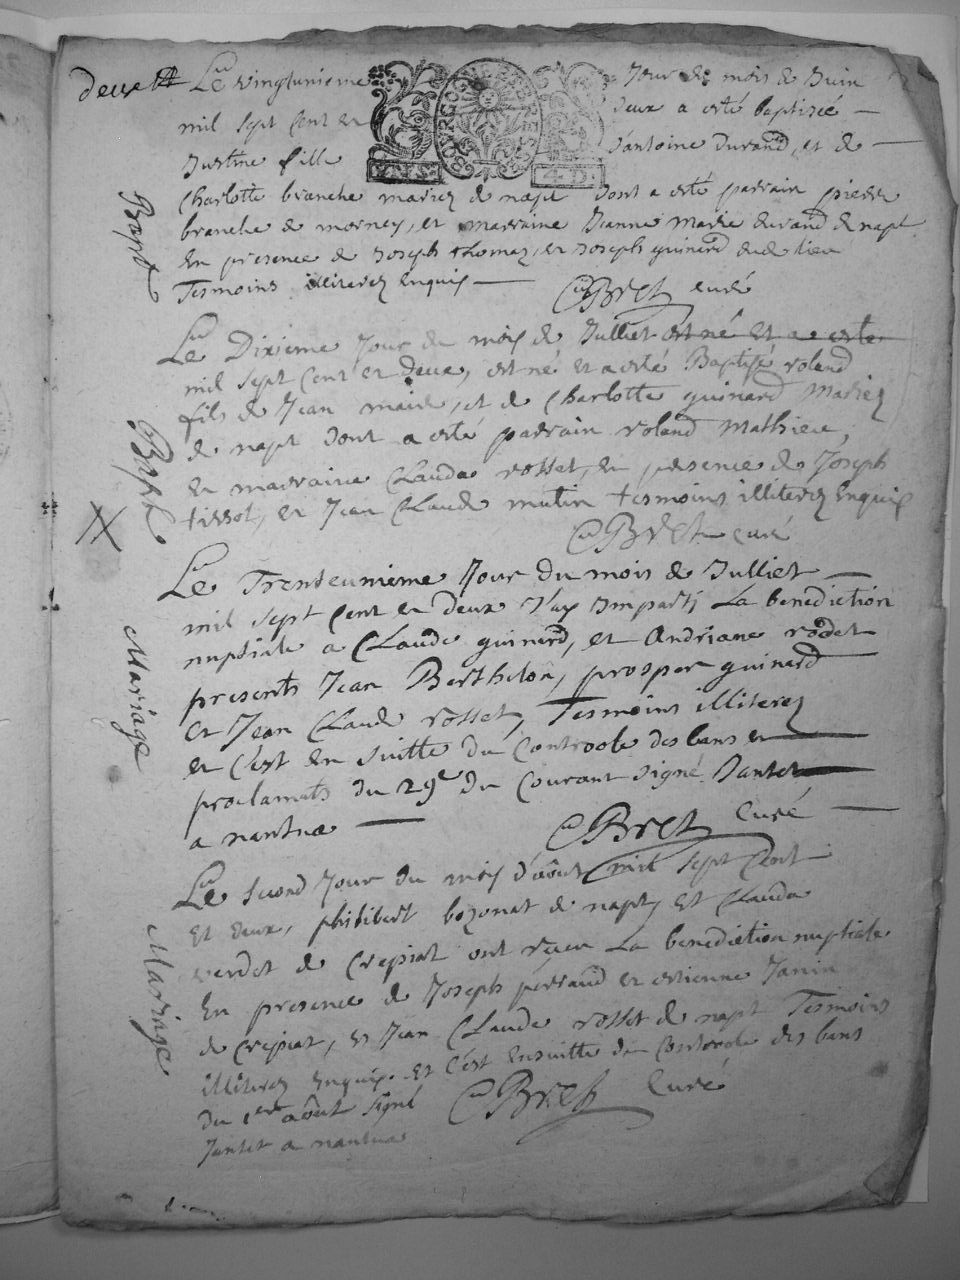 Le vingtunieme Jour du mois de Juin
mil sept cent et deux a esté baptizée
Justine fille d'antoine durand, et de
Charlotte branche mariez de napt dont a esté parrain pierre
branche de mornex, et marraine Jeanne Marie durand de napt
En presence de Joseph thomas, et Joseph guinard dudt lieu
Tesmoins illiterez Enquis
CBret curé
Bapt
Le Dixieme Jour du mois de Julliet est né et a esté
mil sept cent et deux, est né et a esté Baptisé roland
fils de Jean maire, et de Charlotte guinard Mariez
de napt dont a esté parrain roland Mathieu,
et marraine Clauda rosset, en presence de Joseph
tissot, et Jean Claude mutin tesmoins illiterez Enquis
CBret curé
Bapt
Le Trenteunieme Jour du mois de Julliet
mil sept cent et deux J'ay Imparti La benediction
nuptiale a Claude guinard, et Andriane rodet
presents Jean Berthelon, prosper guinard
et Jean Claude rosset, Tesmoins illiterez
et c'est en suitte du Controole des bans et
proclamats du 29e du Courant signé Jantet
a nantua
CBret Curé
Mariage
Le second Jour du mois d'août mil sept Cent
et deux, philibert bozonat de napt, et Clauda
verdet de Crepiat ont receu La benediction nuptiale
En presence de Joseph perraud et estienne Janin
de Crepiat, et Jean Claude rosset de napt Tesmoins
illiterez Enquis. et c'est Ensuitte du Controole des bans
du 1er août signé
Jantet a nantua
CBret Curé
Mariage